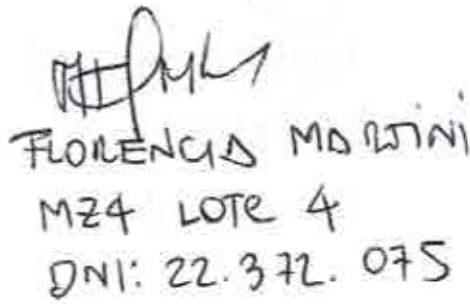 FLORENCIA MARTINI
MZ4 LOTE 4
DNI: 22.372.075